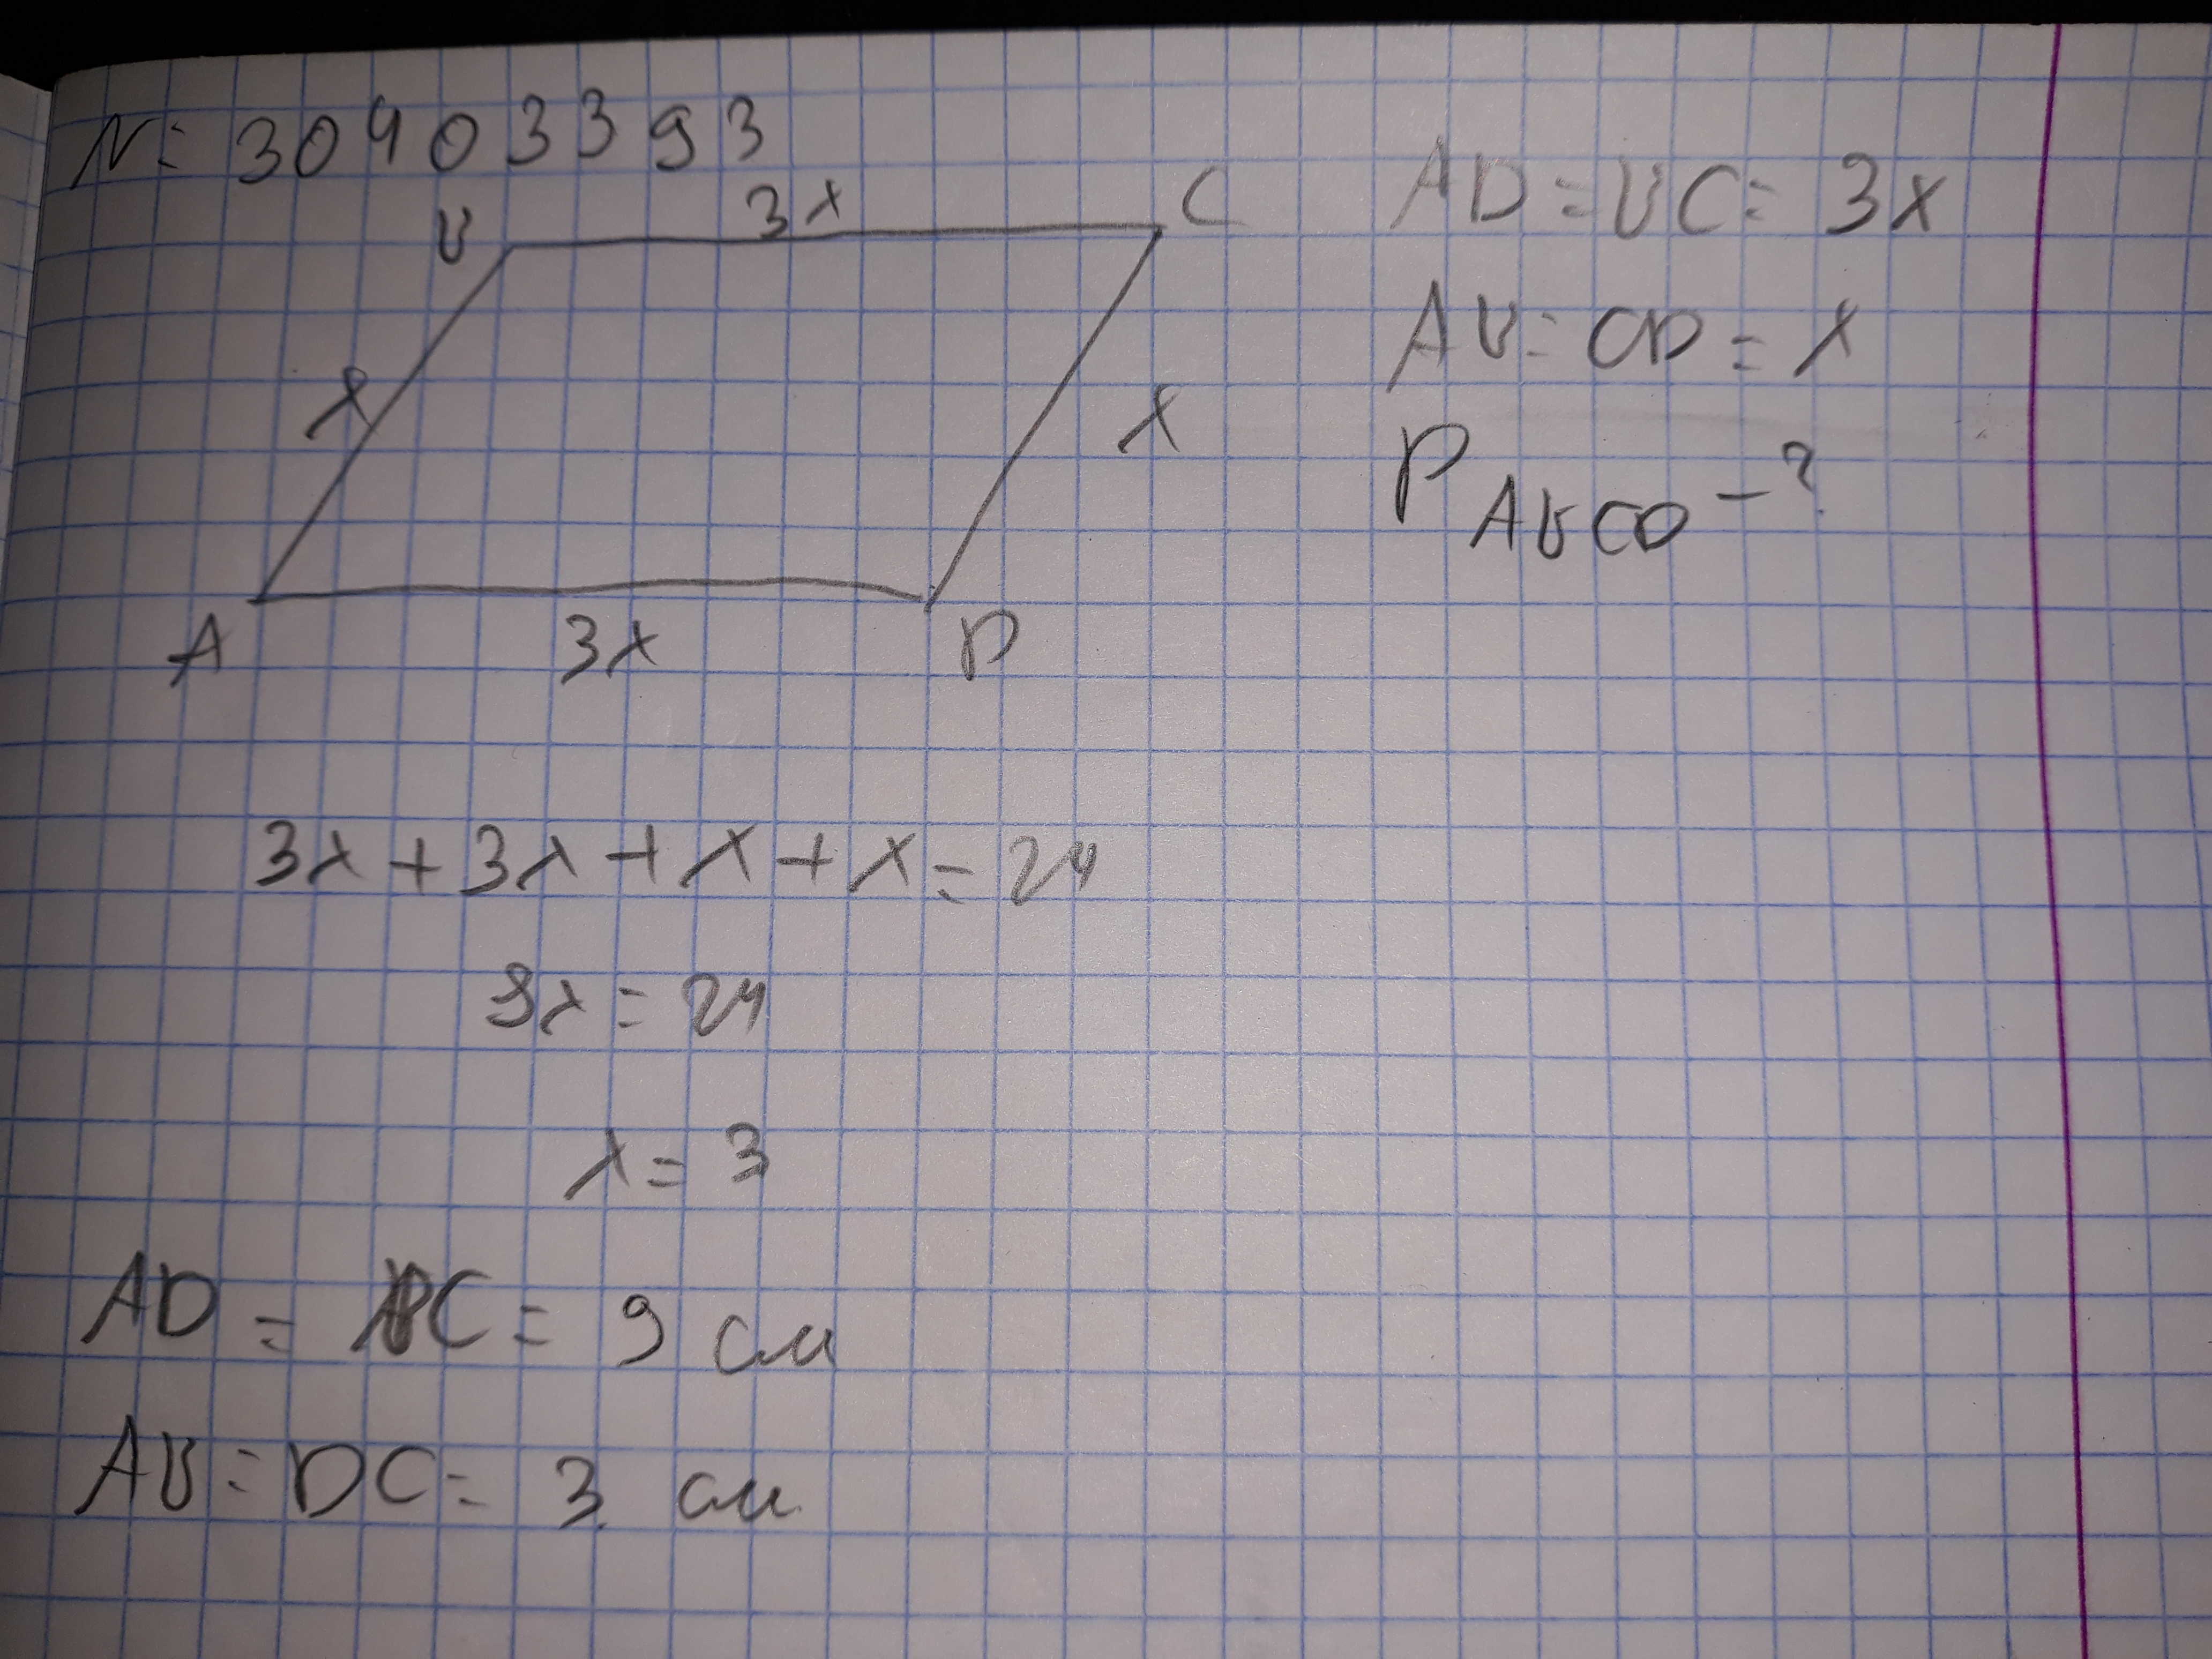 N: 30403393
B 3x C
x x
A 3x D
AD = BC = 3x
AB = CD = x
P ABCD - ?
3x + 3x + x + x = 24
8x = 24
x = 3
AD = BC = 9 см
AB = DC = 3 см